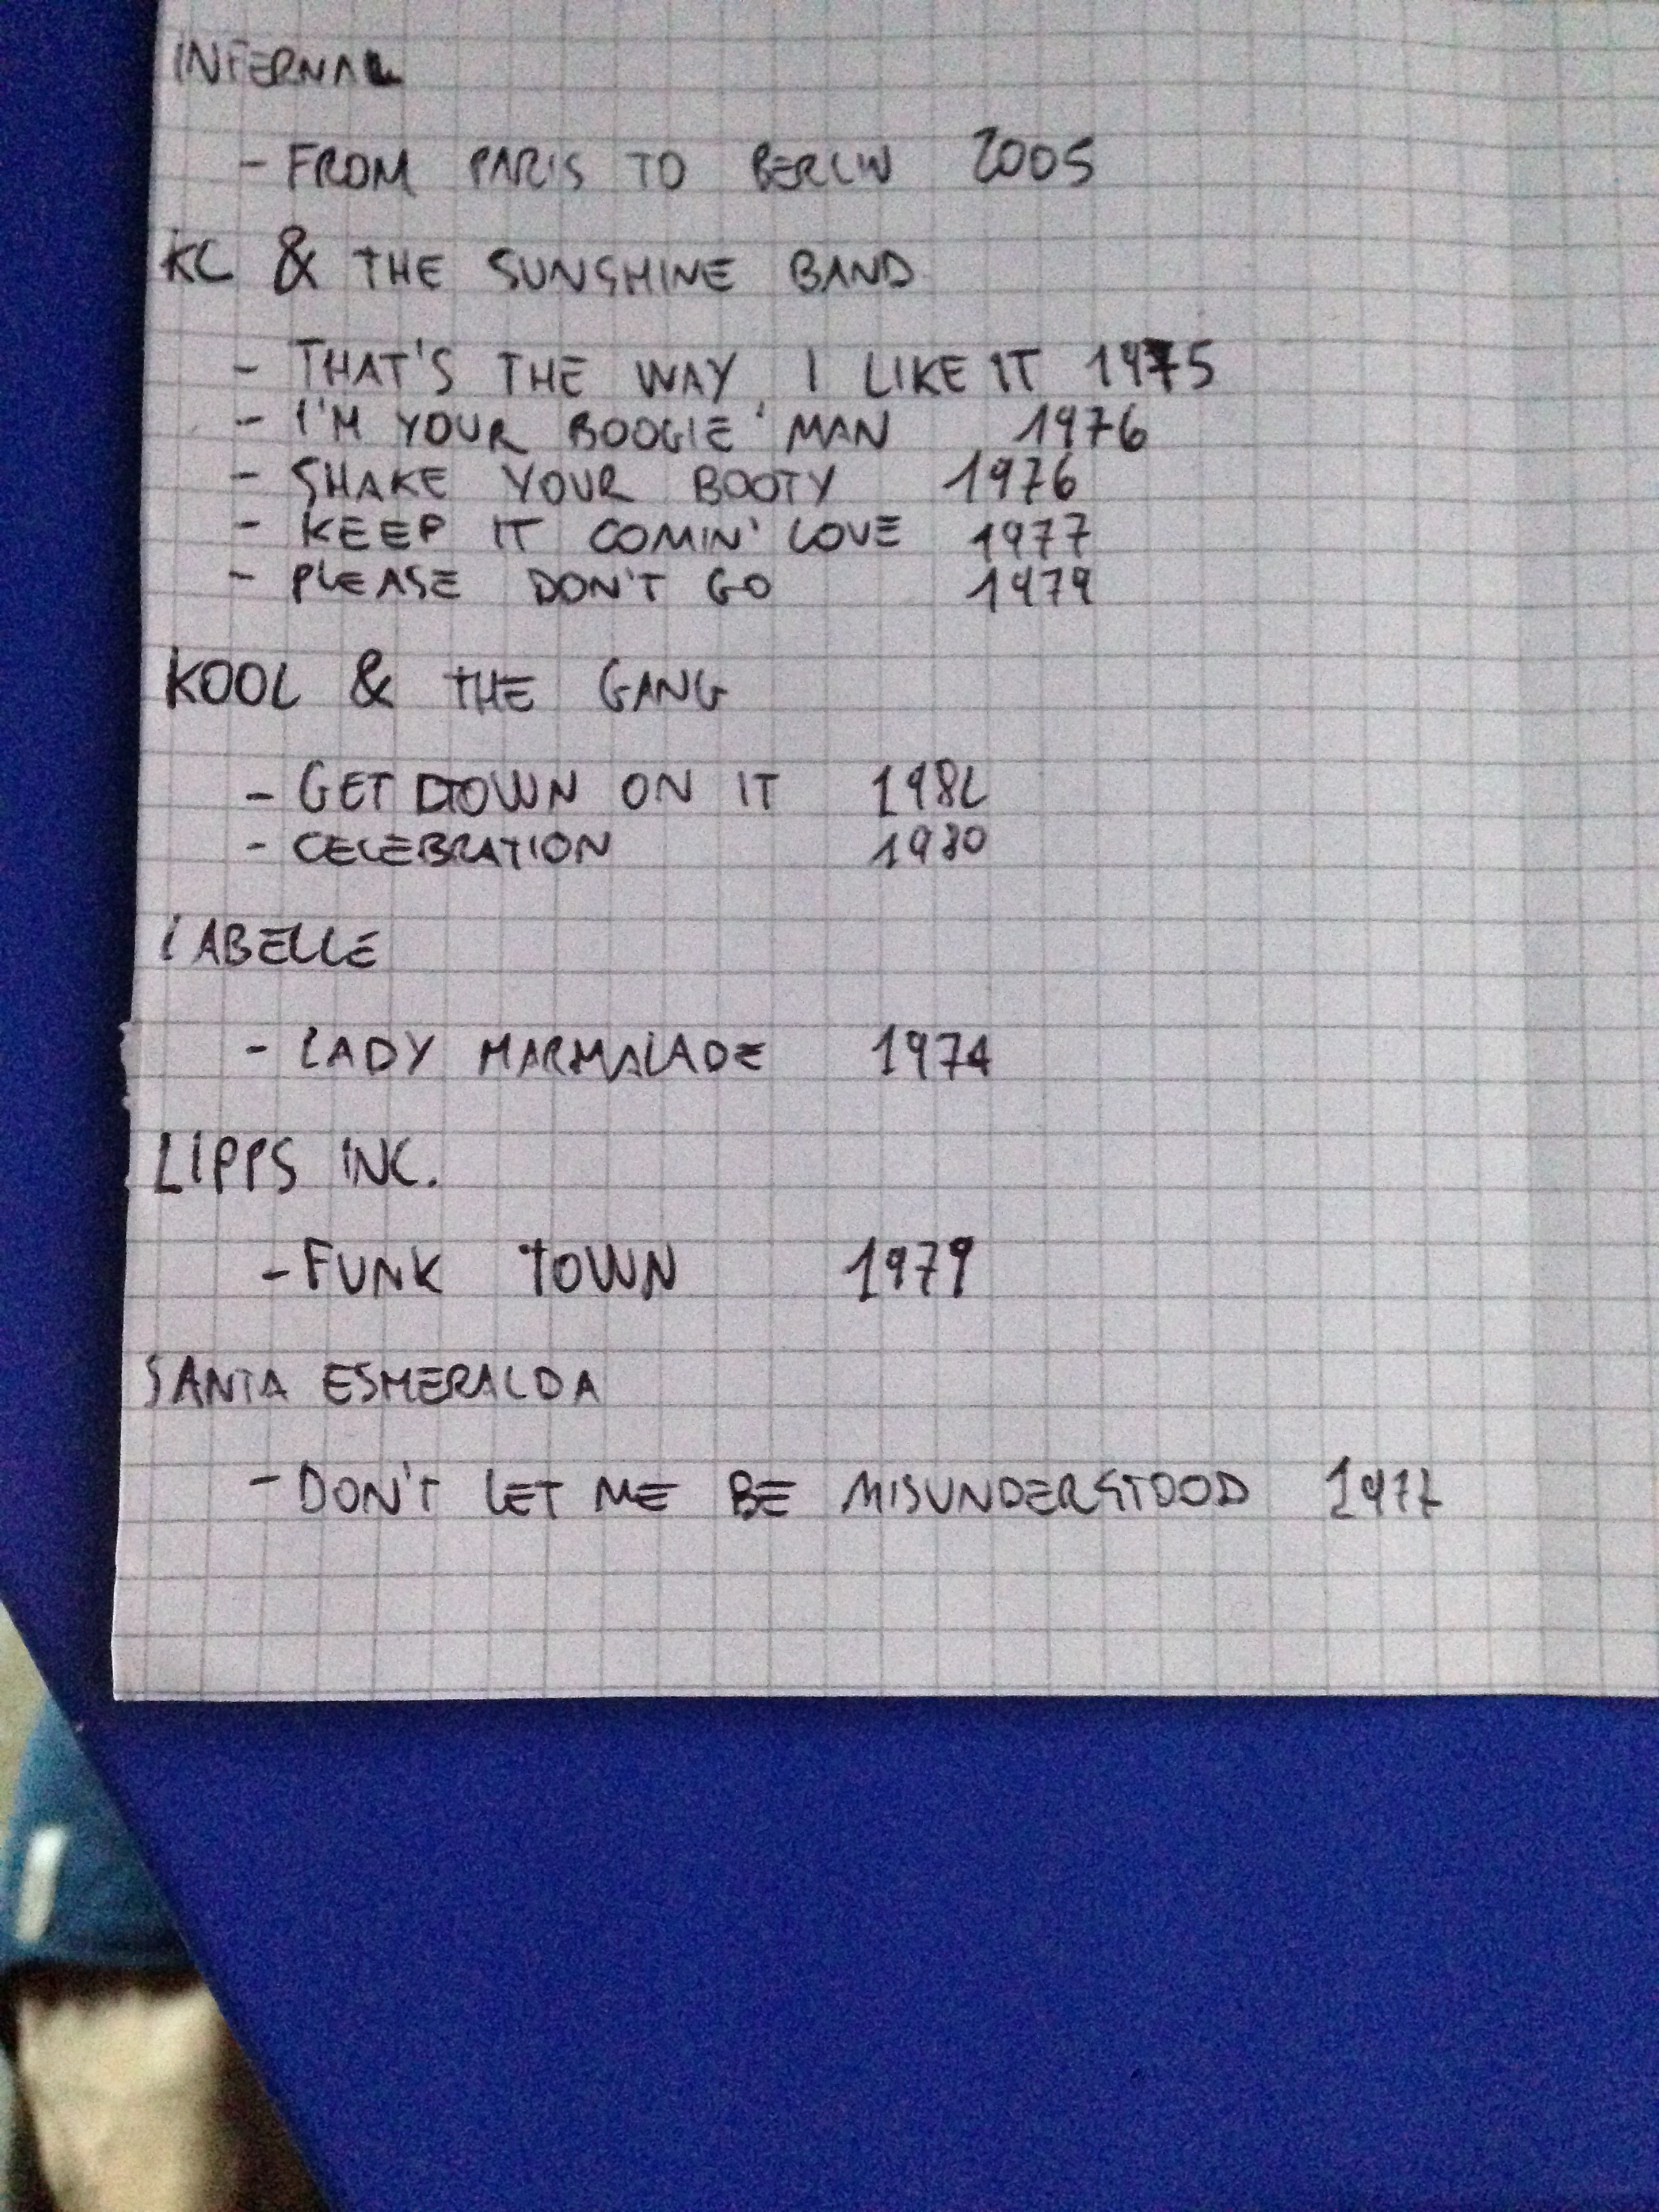 INFERNAL
- FROM PARIS TO BERLIN 2005
KC & THE SUNSHINE BAND
- THAT'S THE WAY I LIKE IT 1975
- I'M YOUR BOOGIE MAN 1976
- SHAKE YOUR BOOTY 1976
- KEEP IT COMIN' LOVE 1977
- PLEASE DON'T GO 1979
KOOL & THE GANG
- GET DOWN ON IT
- CELEBRATION 1980
LABELLE
- LADY MARMALADE 1974
LIPPS INC.
- FUNK TOWN 1979
SANTA ESMERALDA
- DON'T LET ME BE MISUNDERSTOOD 1977